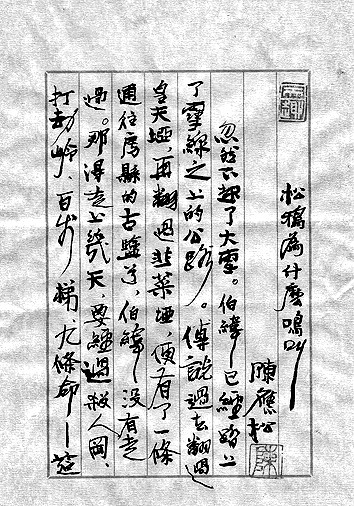 松鴉為什麼鳴叫
陳應松
忽然下起了大雪。伯緯已經踏上
了雪線之上的公路。傳說過去翻過
皇天埡,再翻過韭菜埡,便有了一條
通往房縣的古鹽道,伯緯沒有走
過。那得走上幾天,要經過殺人岡、
打劫嶺、百步梯、九條命
陳